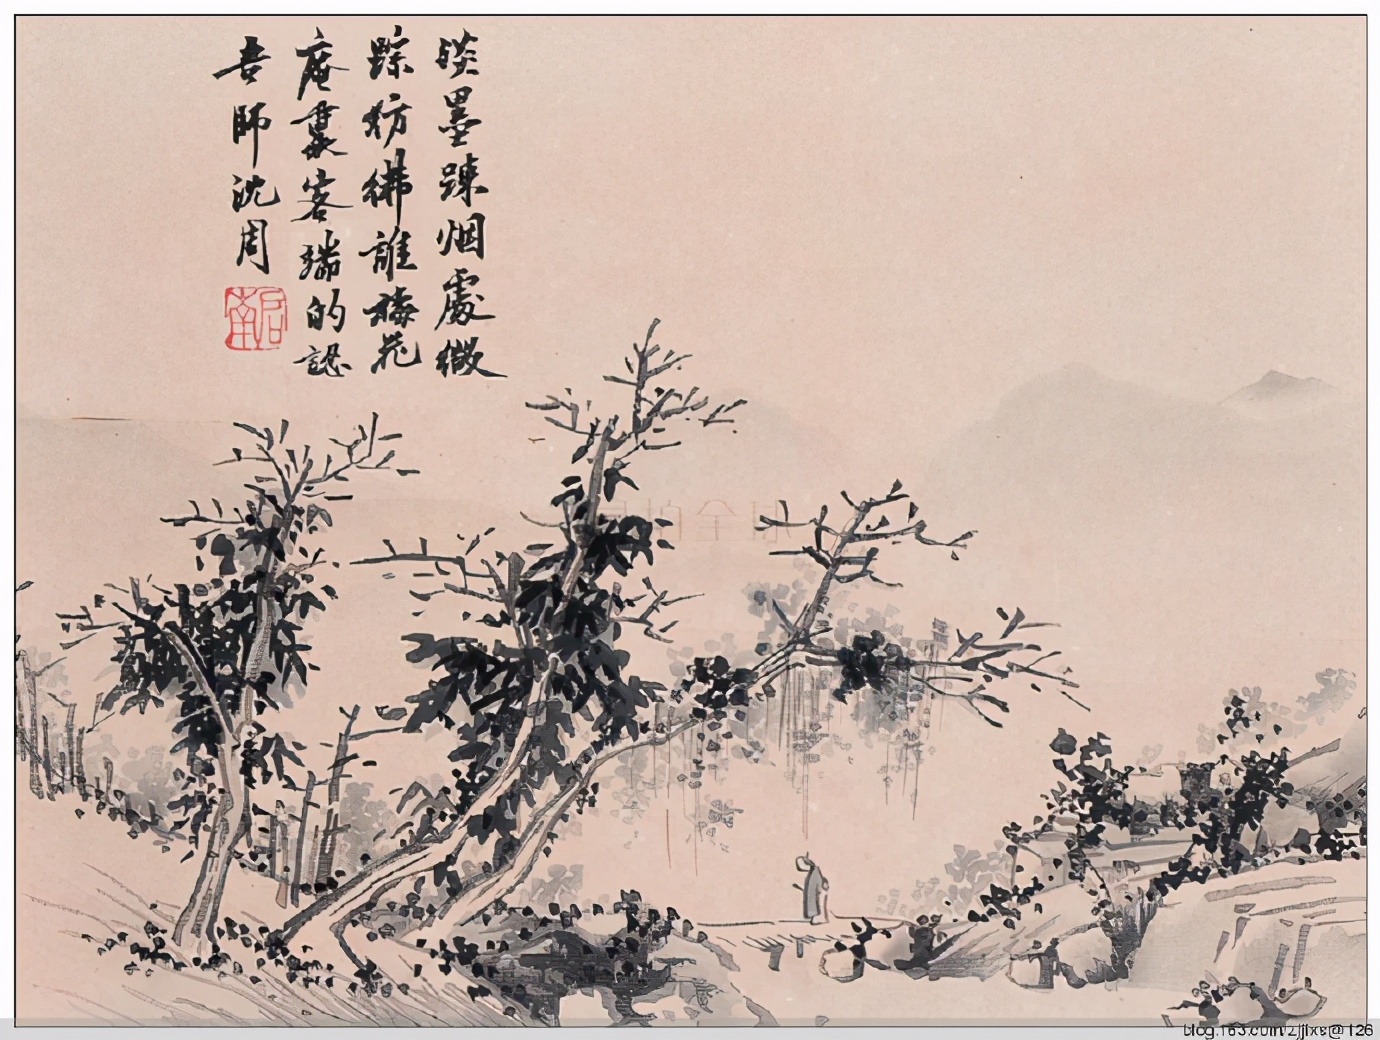 淡墨踈烟處微
踪彷彿誰梅花
庵裏客端的認
吾師沈周
启南
blog.163.com/zjjlxs@126